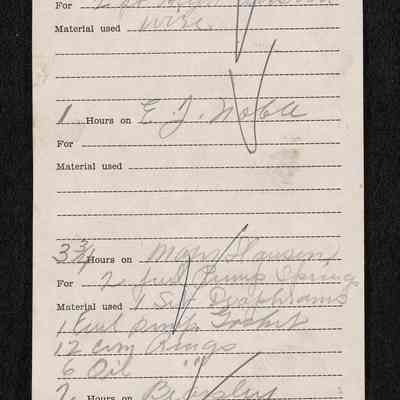 For 2
Material used wire.
1 Hours on E. J. Noble
For
Material used
3 3/4 Hours on
For 2 fuel Pump Springs
Material used 1 Set Diaphrams
1 Fuel pump Gasket
12 Rings
6 Oil "
2 Hours on